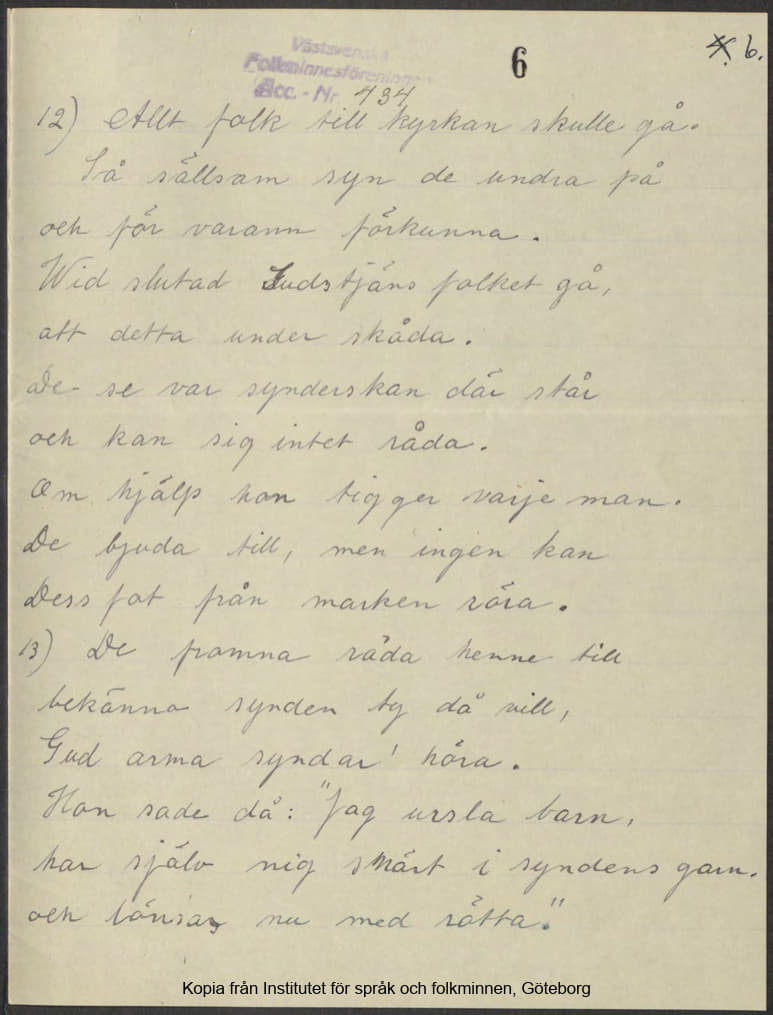 Västsvenska
6
4. 6.
Folkminnesföreningen
Acc. - Nr 434
12) Allt folk till kyrkan skulle gå.
Så sällsam syn de undra på
och för varann förkunna.
Wid slutad Gudstjäns folket gå,
att detta under skåda.
De se var synderskan där står
och kan sig intet råda.
Om hjälp hon tigger varje man.
De bjuda till, men ingen kan
Dess fot från marken röra.
13) De fromna råda henne till
bekänna synden ty då vill,
Gud arma syndar' höra.
Hon sade då: "Jag ursla barn,
har själv mig snärt i syndens garn.
och lönsas nu med rätta."
Kopia från Institutet för språk och folkminnen, Göteborg